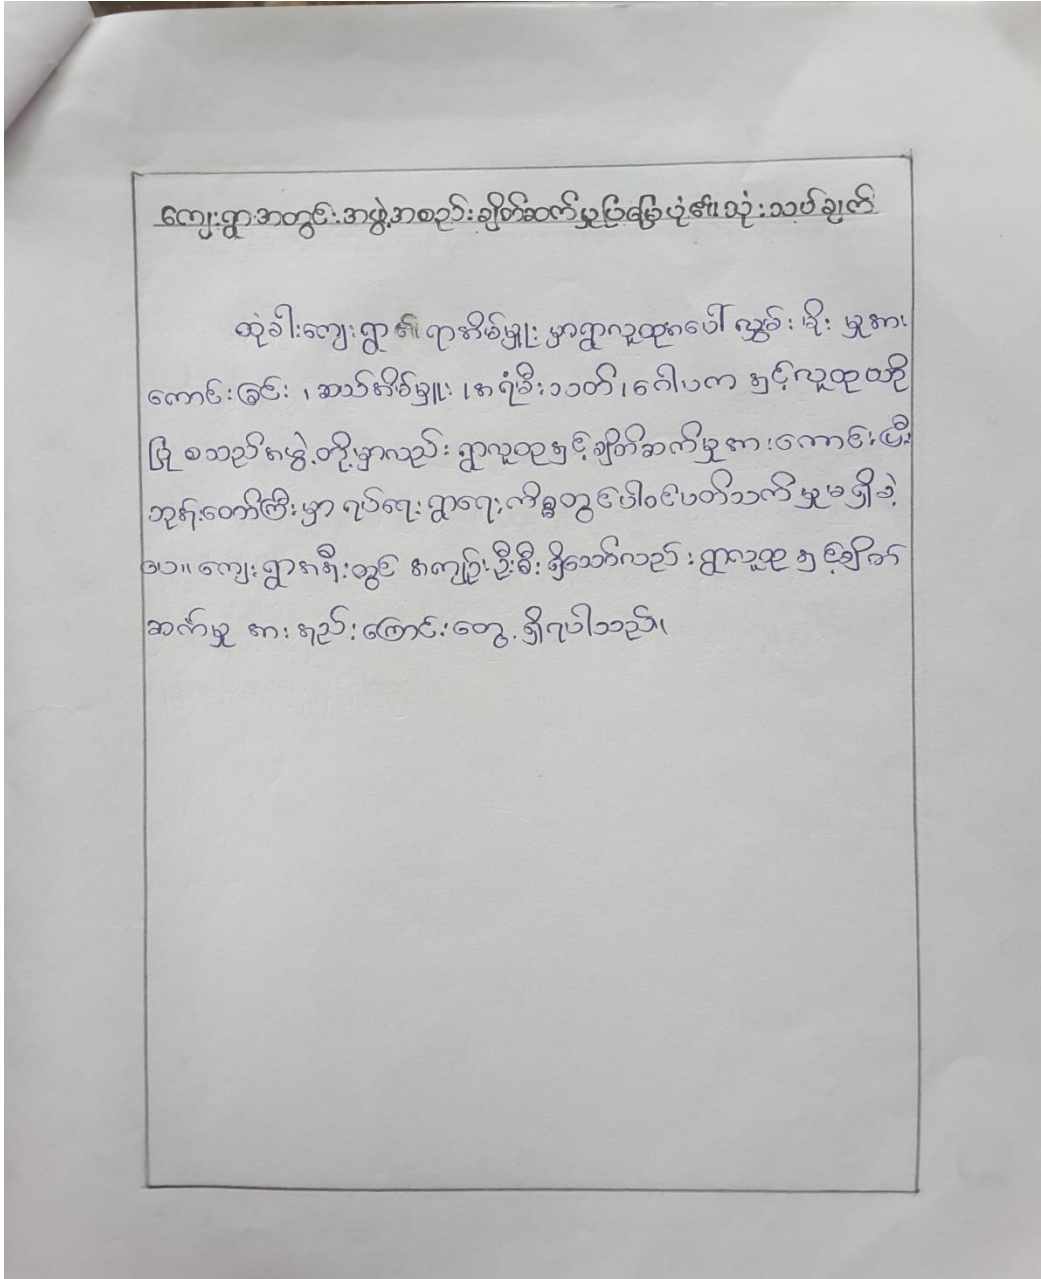 ကျေးရွာအတွင်းအဖွဲ့အစည်းချိတ်ဆက်မှုပြမြေပုံ၏သုံးသပ်ချက်
ထုံခါးကျေးရွာ၏ ရာအိမ်မှူး မှာရွာလူထုအပေါ် လွှမ်းမိုး မှုအား
ကောင်းခြင်း ၊ ဆယ်အိမ်မှူး ၊ အရံမီးသတ် ၊ ဂေါပက နှင့်လူထုထို
ပြု စသည်အဖွဲ့တို့မှာလည်း ရွာလူထုနှင့်ချိတ်ဆက်မှုအားကောင်းပြီး
ဘုန်းတော်ကြီးမှာ ရပ်ရေးရွာရေးကိစ္စတွင်ပါဝင်ပတ်သက်မှုမရှိခဲ့
ပေ။ ကျေးရွာအနီးတွင် အကျဉ်းဦးစီးရှိသော်လည်း ရွာလူထုနှင့်ချိတ်
ဆက်မှု အားနည်းကြောင်းတွေ့ရှိရပါသည်။